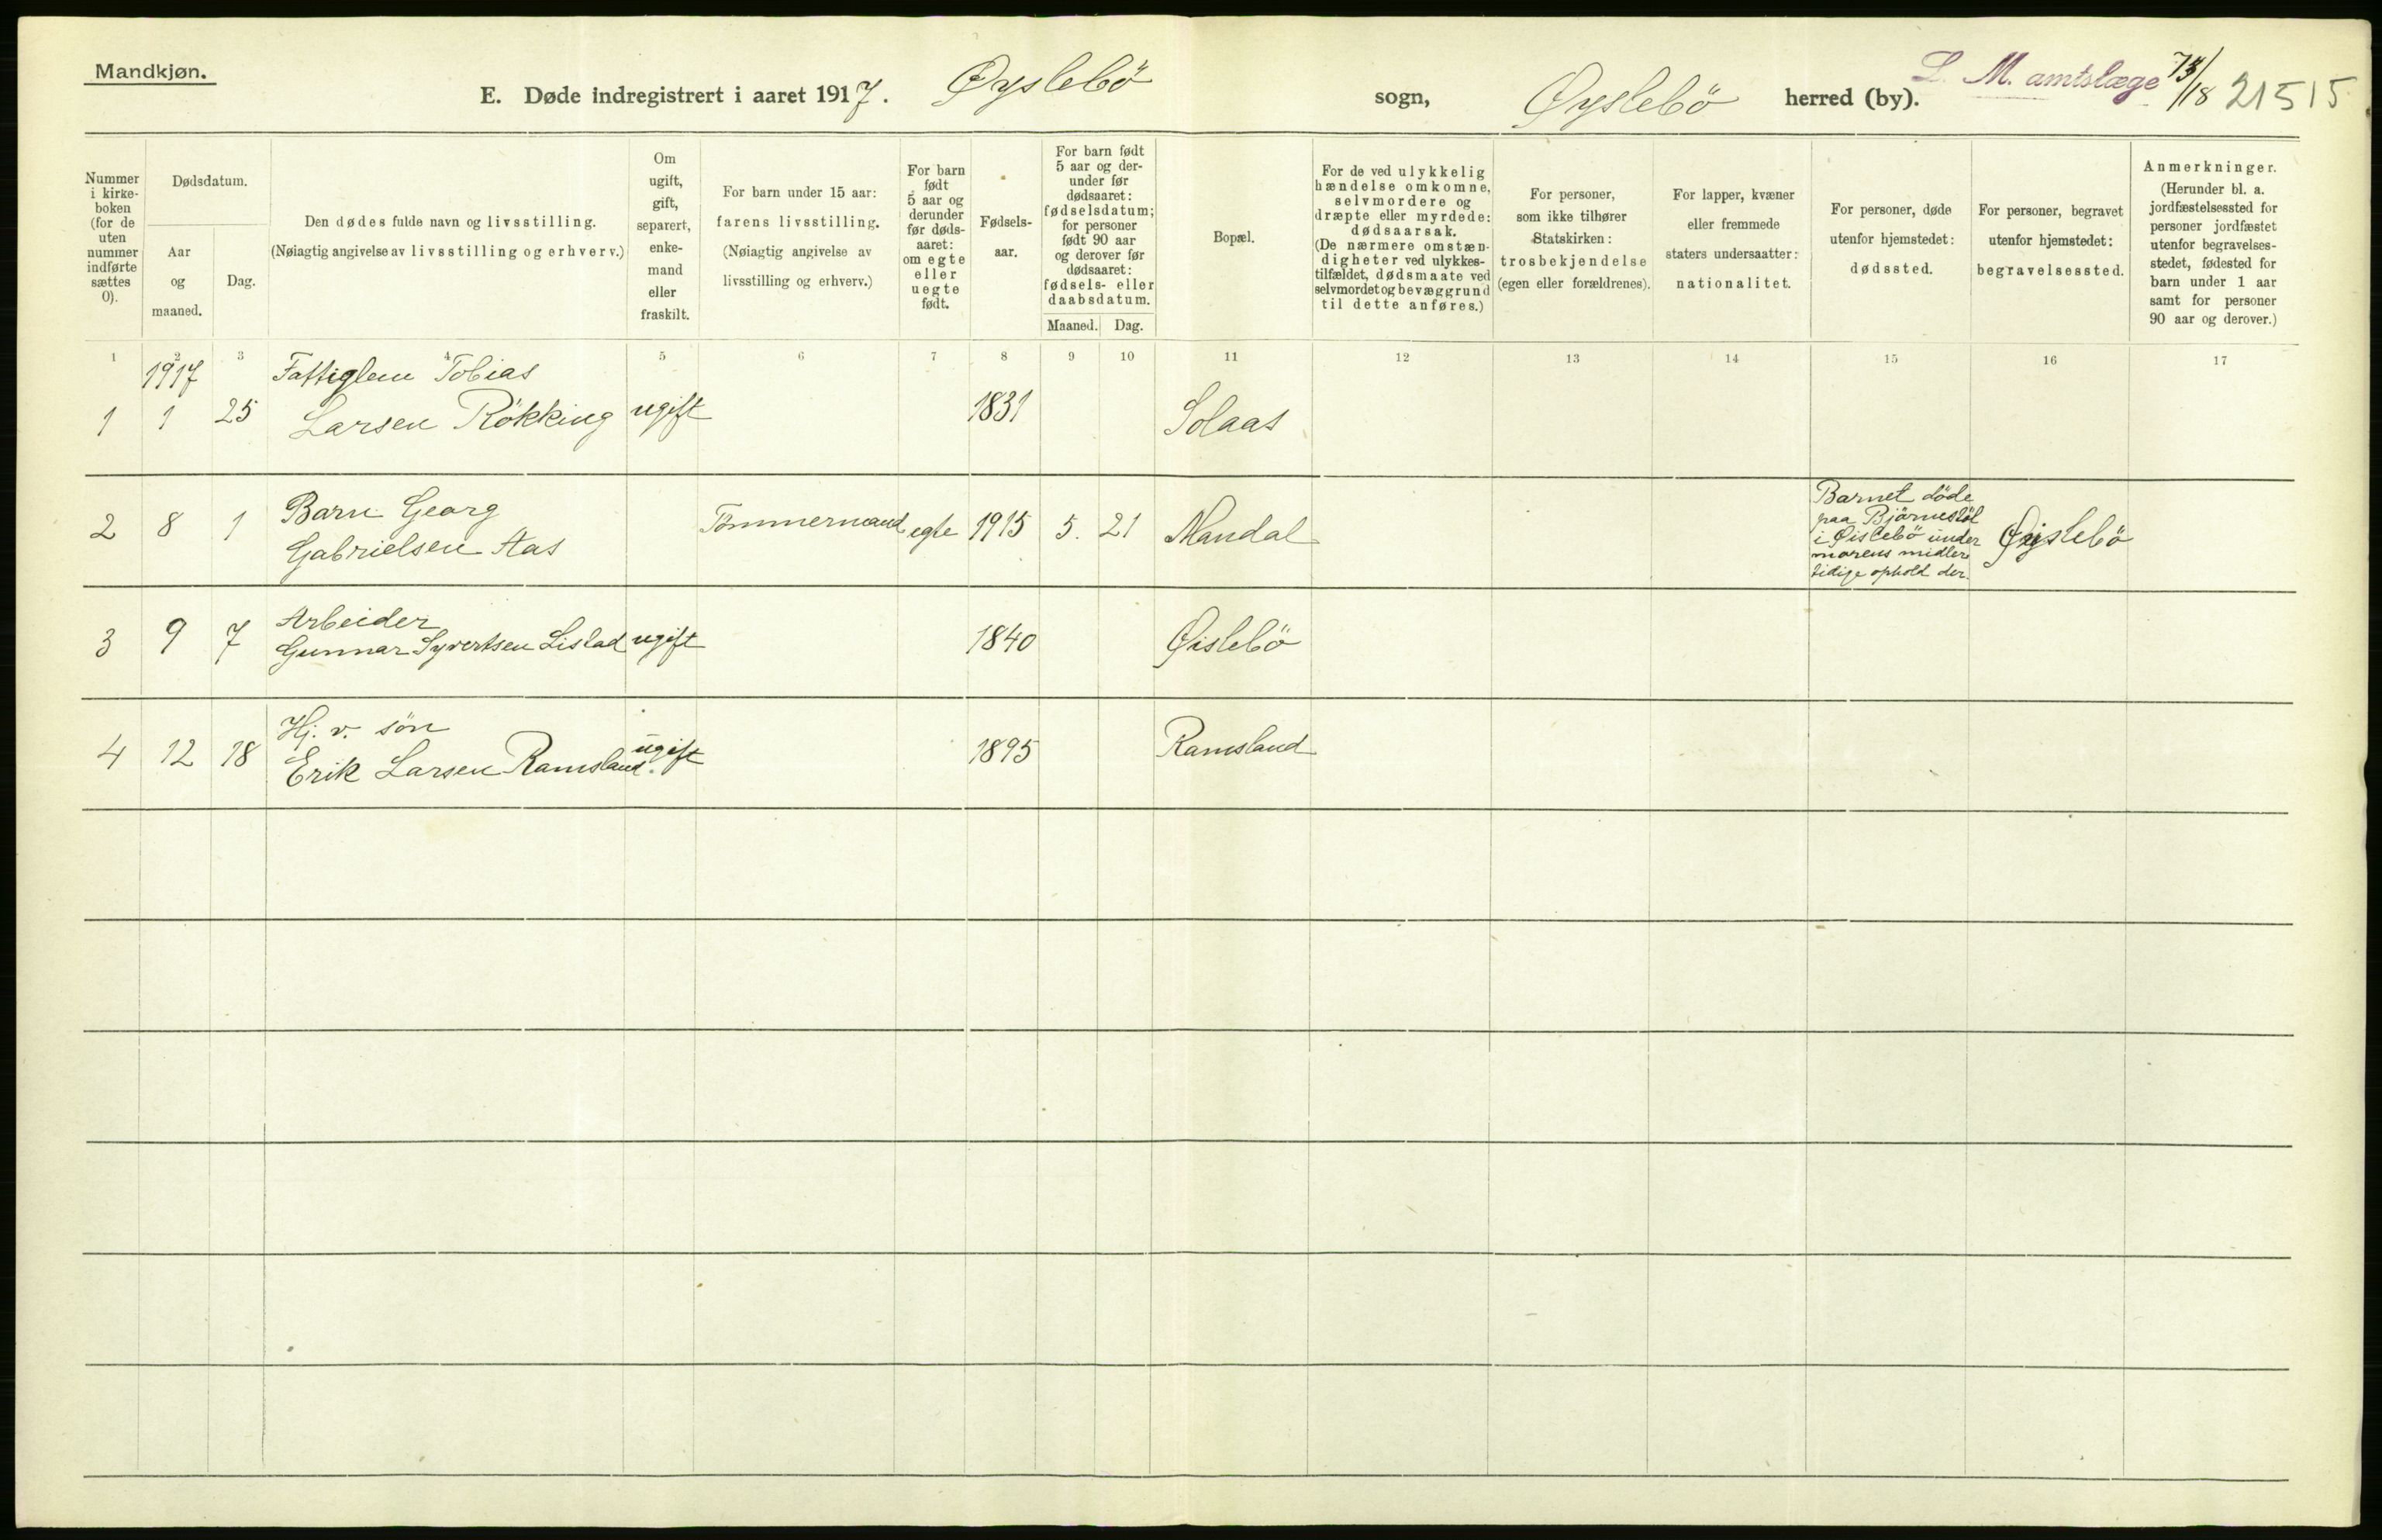 Mandkjøn.
E. Døde indregistrert i aaret 1917. Øyslebö sogn, Øyslebö herred (by).
L. M. amtslæge /18 21515
Nummer
i kirke-
boken
(for de
uten
nummer
indførte
sættes
0).
Dødsdatum.
Aar
og
maaned.
Dag.
Den dødes fulde navn og livsstilling.
(Nøiagtig angivelse av livsstilling og erhverv.)
Om
ugift,
gift,
separert,
enke-
mand
eller
fraskilt.
For barn under 15 aar:
farens livsstilling.
(Nøiagtig angivelse av
livsstilling og erhverv.)
For barn
født
5 aar og
derunder
før døds-
aaret:
om egte
eller
uegte
født.
Fødsels-
aar.
For barn født
5 aar og der-
under før
dødsaaret:
fødselsdatum;
for personer
født 90 aar
og derover før
dødsaaret:
fødsels- eller
daabsdatum.
Maaned. Dag.
Bopæl.
For de ved ulykkelig
hændelse omkomne,
selvmordere og
dræpte eller myrdede:
dødsaarsak.
(De nærmere omstæn-
digheter ved ulykkes-
tilfældet, dødsmaate ved
selvmordet og bevæggrund
til dette anføres.)
For personer,
som ikke tilhører
Statskirken:
trosbekjendelse
(egen eller forældrenes).
For lapper, kvæner
eller fremmede
staters undersaatter:
nationalitet.
For personer, døde
utenfor hjemstedet:
dødssted.
For personer, begravet
utenfor hjemstedet:
begravelsessted.
Anmerkninger.
(Herunder bl. a.
jordfæstelsessted for
personer jordfæstet
utenfor begravelses-
stedet, fødested for
barn under 1 aar
samt for personer
90 aar og derover.)
1 2 3 4 5 6 7 8 9 10 11 12 13 14 15 16 17
1917 Fattiglem Tobias
1 1 25 Larsen Rökking ugift 1831 Solaas
2 8 1 Barn Georg
Gabrielsen Aas
Tömmermand egte 1915 5. 21 Mandal
Barnet döde
paa Bjärnestöl
i Øislebö under
morens midler
tidige ophold der.
Øyslebö
3 9 7 Arbeider
Gunnar Syvertsen Lislad ugift 1840 Øislebö
4 12 18 Hj. v. sön
Erik Larsen Ramsland. ugift 1895 Ramsland